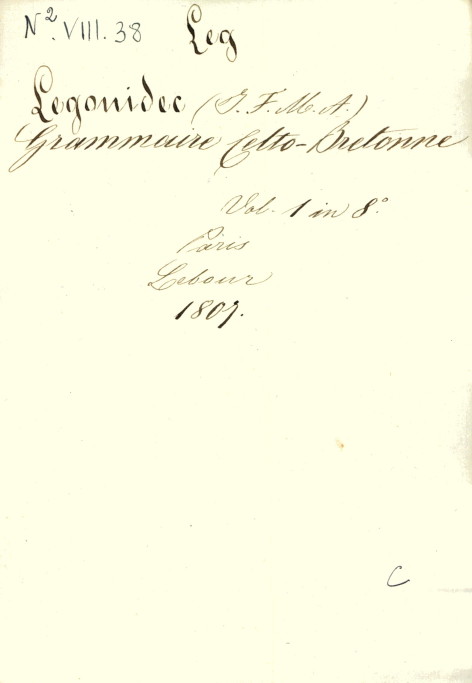 N². VIII. 38 Leg
Legonidec (J. F. M. A.)
Grammaire Celto-Bretonne
Vol. 1 in 8°
Paris
Lebour
1807.
C